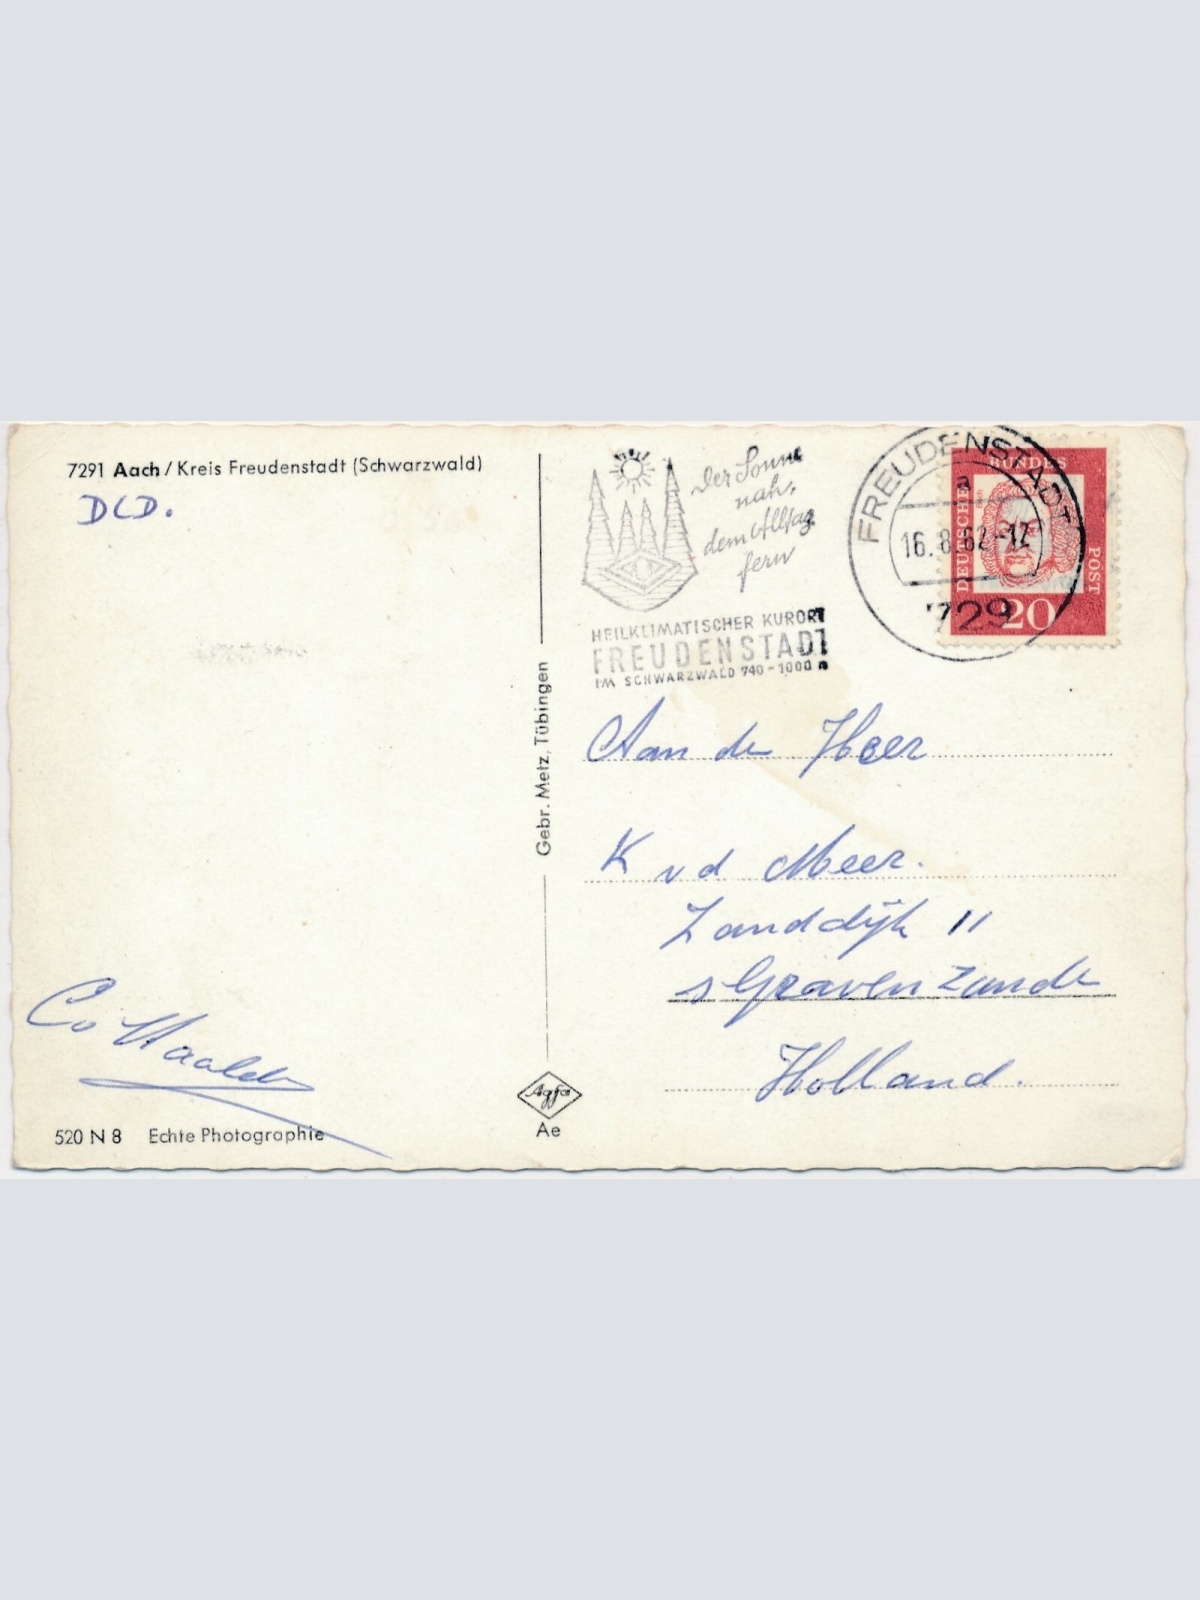 7291 Aach / Kreis Freudenstadt (Schwarzwald)
DLD.
Co Haaleb
520 N 8 Echte Photographie
Gebr. Metz, Tübingen
Agfa
Ae
Der Sonne
nah,
dem Alltag
fern
HEILKLIMATISCHER KURORT
FREUDENSTADT
IM SCHWARZWALD 740-1000 m
FREUDENSTADT
a
16.8.62-12
729
DEUTSCHE
BUNDES
POST
20
Aan de Heer
K v d Meer.
Zanddijk 11
s Gravenzande
Holland.